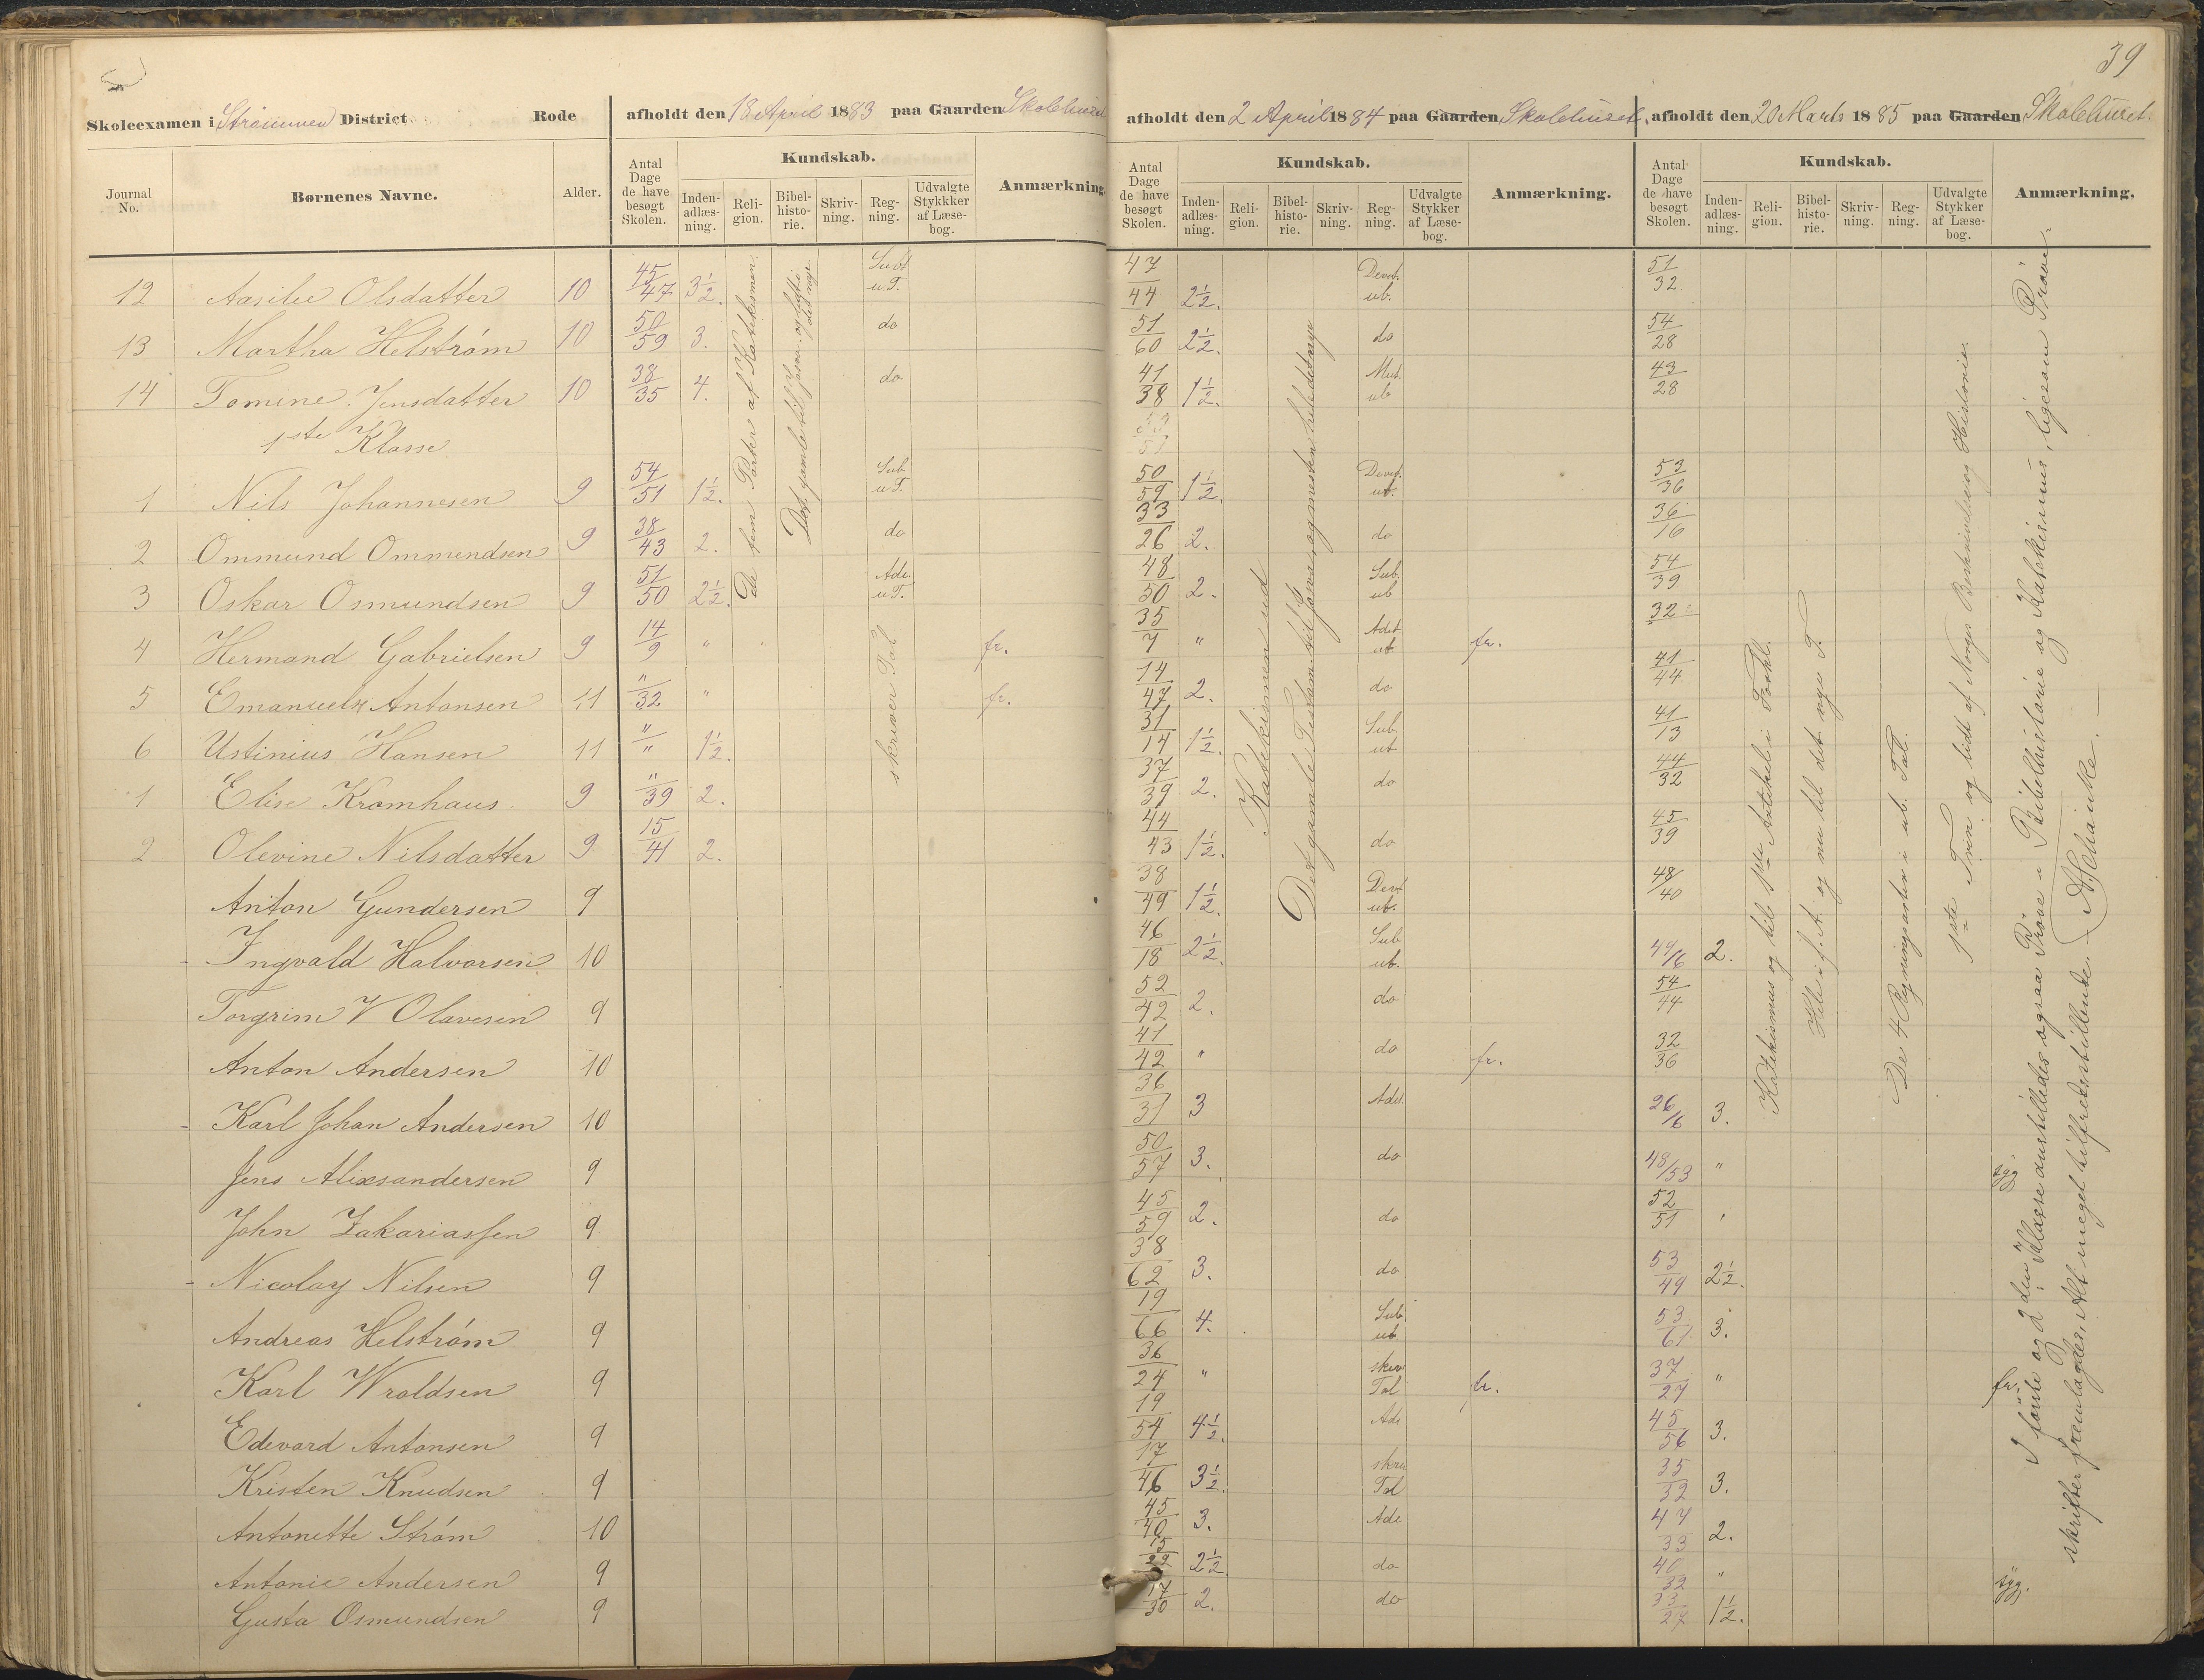 39
Skoleexamen i Strømmen District Rode
afholdt den 18 April 1883 paa Gaarden Skolehuset
afholdt den 2 April 1884 paa Gaarden Skolehuset.
afholdt den 20 Marts 1885 paa Gaarden Skolehuset.
Journal No. Børnenes Navne. Alder. Antal Dage de have besøgt Skolen. Kundskab. Inden-adlæs-ning. Reli-gion. Bibel-histo-rie. Skriv-ning. Reg-ning. Udvalgte Stykkker af Læse-bog. Anmærkning.
Antal Dage de have besøgt Skolen. Kundskab. Inden-adlæs-ning. Reli-gion. Bibel-histo-rie. Skriv-ning. Reg-ning. Udvalgte Stykker af Læse-bog. Anmærkning.
Antal Dage de have besøgt Skolen. Kundskab. Inden-adlæs-ning. Reli-gion. Bibel-histo-rie. Skriv-ning. Reg-ning. Udvalgte Stykker af Læse-bog. Anmærkning.
12 Aasilie Olsdatter 10 45/47 3½. Subt u.T. 47/44 2½. Devet. ub. 51/32
13 Martha Helstrøm 10 50/59 3. do 51/60 2½. do 54/28
14 Tomine Jensdatter 10 38/35 4. do 41/38 1½. Mut. ub 43/28
1ste Klasse
1 Nils Johannesen 9 54/51 1½. Sub u.T. 50/59 1½. Devet. ub. 53/36
2 Ommund Ommendsen 9 38/43 2. do 33/26 2. do 36/16
3 Oskar Osmundsen 9 51/50 2½. Ade. u.T. 48/50 2. Sub. ub 54/39
4 Hermand Gabrielsen 9 14/9 " fr. 35/7 " Adet ub. fr. 32
5 Emanuels Antonsen 11 "/32 " fr. 14/47 2. do 41/44
6 Ustinius Hansen 11 "/" 1½. 31/14 1½. Sub. ub 41/13
1 Elise Kromhaus 9 "/39 2. 37/39 2. do 44/32
2 Olevine Nilsdatter 9 15/41 2. 44/43 1½. do 45/39
Anton Gundersen 9 38/49 1½. Devt ub. 48/40
Ingvald Halvorsen 10 46/18 2½. Sub ub. 44/6 2.
Torgrim V Olavesen 9 52/42 2. do 54/44
Anton Andersen 10 41/42 " do fr. 32/36
Karl Johan Andersen 10 36/31 3 Adet. 26/6 3.
Jens Alixsandersen 9 50/57 3. do 48/53 " syg
John Zakariassen 9 45/59 2. do 52/51
Nicolay Nilsen 9 38/62 3. do 53/49 2½.
Andreas Helstrøm 9 19/66 4. Sub ub 53/61 3.
Karl Wroldsen 9 36/24 " skriv Tal fr. 37/27 " fr.
Edevard Antonsen 9 19/54 4½. Ade 45/56 3.
Kristen Knudsen 9 17/46 3½. skriv Tal 35/52 3.
Antonette Strøm 10 45/40 3. Ade 47/33 2.
Antonie Andersen 9 15/22 2½ do 40/32 " syg.
Gusta Osmundsen 9 17/30 2. do 33/27 1½.
De fem Parter af Katekismen.
Det gamle til Josva og lidt i det nye
skriver Tal
Katekismen ud
Det gamle Testam. til Josva og mesten hele det nye
Katekismus og til 1ste Artikel i Forkl.
Hele i f. A. og nu til det nye T.
De 4 Regningsarter i ub. Tal.
1ste Trin og lidt af Norges Beskrivelse og Historie.
I første og 2den Klasse anstilledes ogsaa Prøve i Bibelhistorie og Katekismus, ligesom Prøve-
skrifter fremlagdes. Alt meget tilfredsstillende.